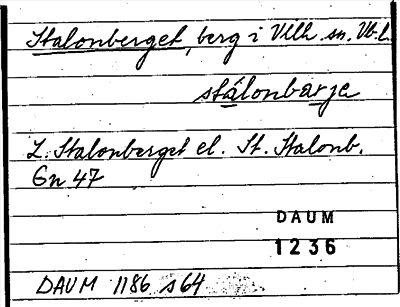 Stalonberget, berg i Vilh. sn. Vb. l.
stálonbarje
L. Stalonberget el. St. Stalonb.
Gn 47
DAUM
1236
DAUM 1186 s 64